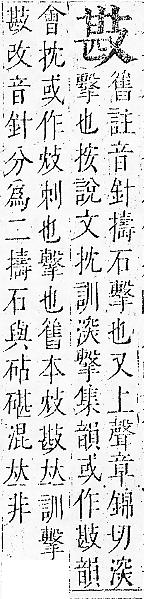 舊註音針擣石擊也又上聲章錦切深
擊也按說文抌訓深擊集韻或作韻
會抌或作刺也擊也舊本𠀤訓擊
改音針分爲二擣石與砧碪混𠀤非